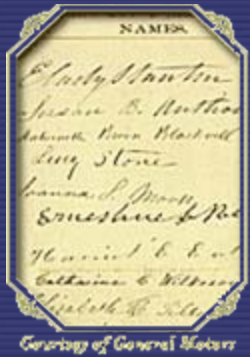 NAMES.
E Cady Stanton
Susan B. Anthon
Antoinette Brown Blackwell
Lucy Stone
Joanna S. Morse
Ernestine L Ros
Harriet E. E
Catharine C. Wilkeson
Elizabeth R. Tilt
Courtesy of General Motors